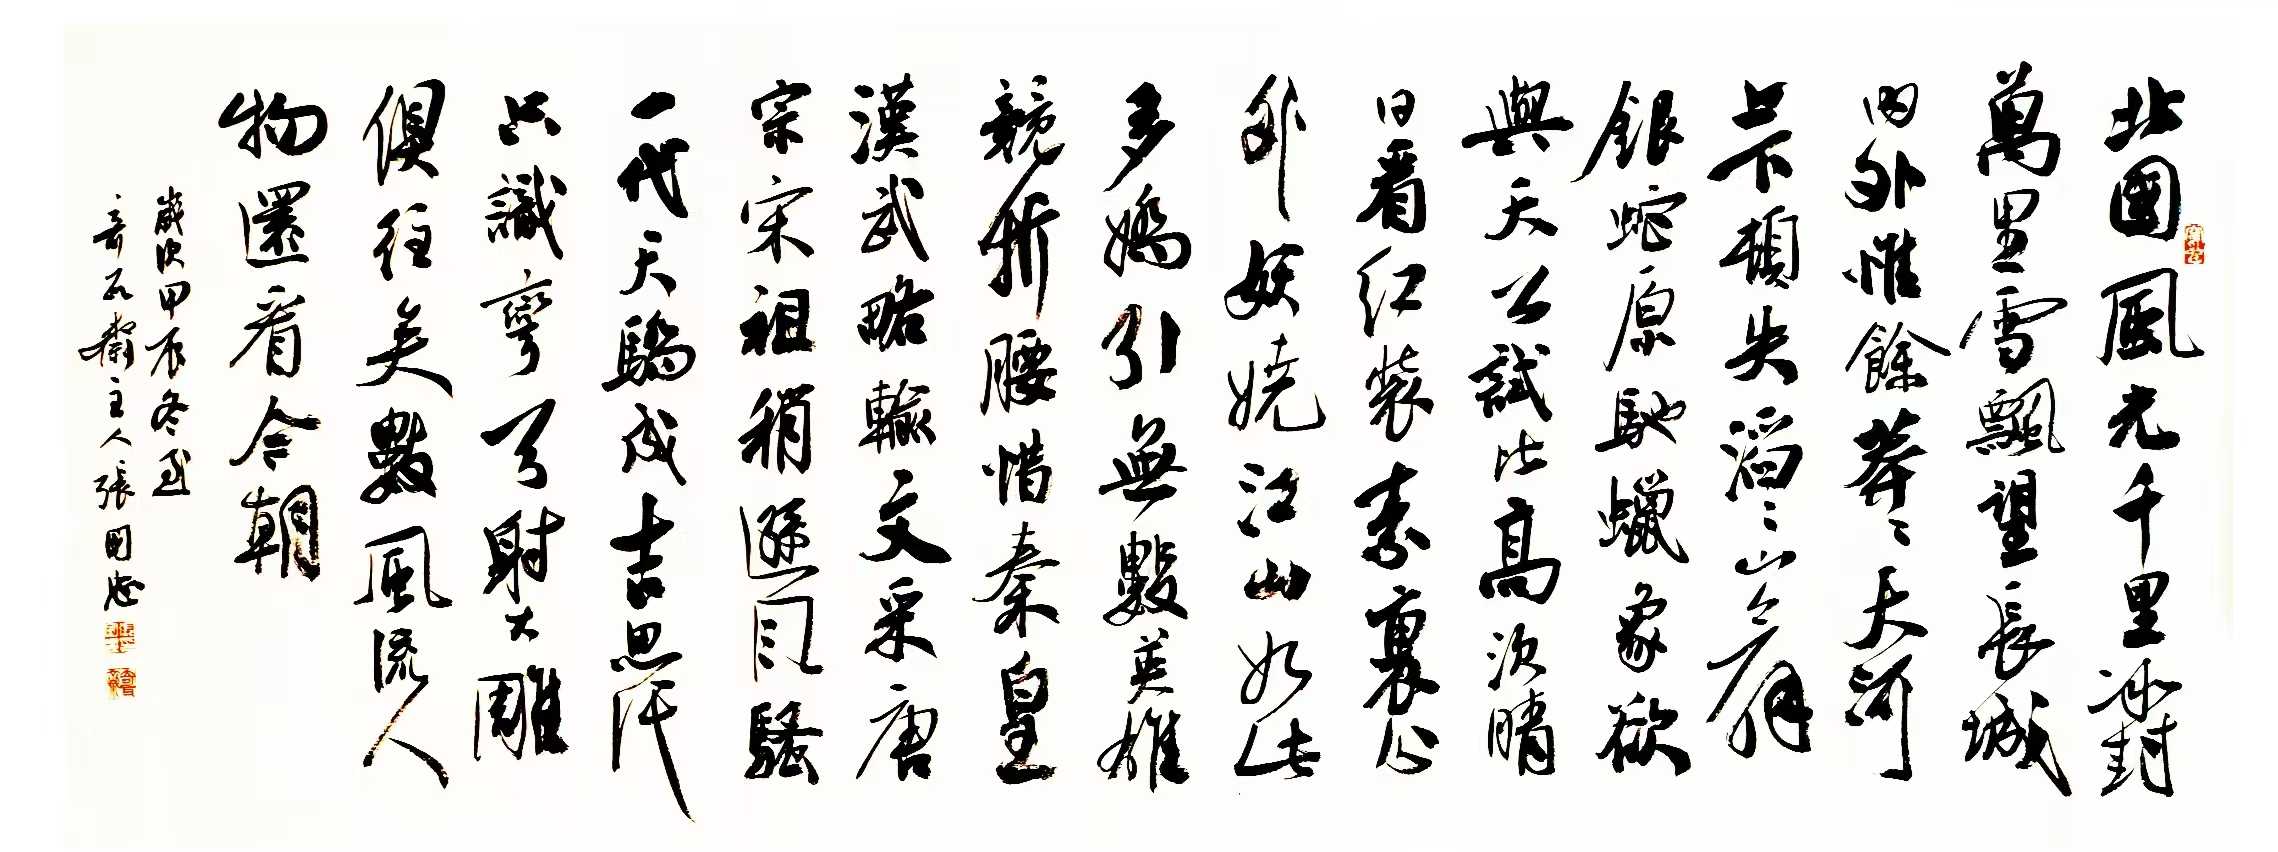 北國風光千里冰封
萬里雪飄望長城
内外惟餘莽〻大河
上下頓失滔〻山舞
銀蛇原馳蠟象欲
與天公試比高須晴
日看紅裝素裹分
外妖嬈江山如此
多嬌引無數英雄
競折腰惜秦皇
漢武略輸文采唐
宗宋祖稍遜風騷
一代天驕成吉思汗
只識彎弓射大雕
俱往矣數風流人
物還看今朝
歲次甲辰冬至
齋主人張國忠